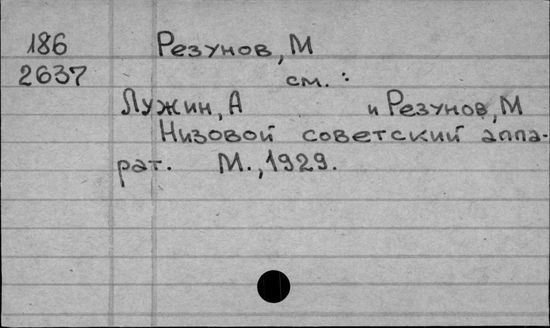 186 Резунов, М
2637 см. :
Лужин, А и Резунов, М
Низовой советский аппа-
рат. М., 1929.